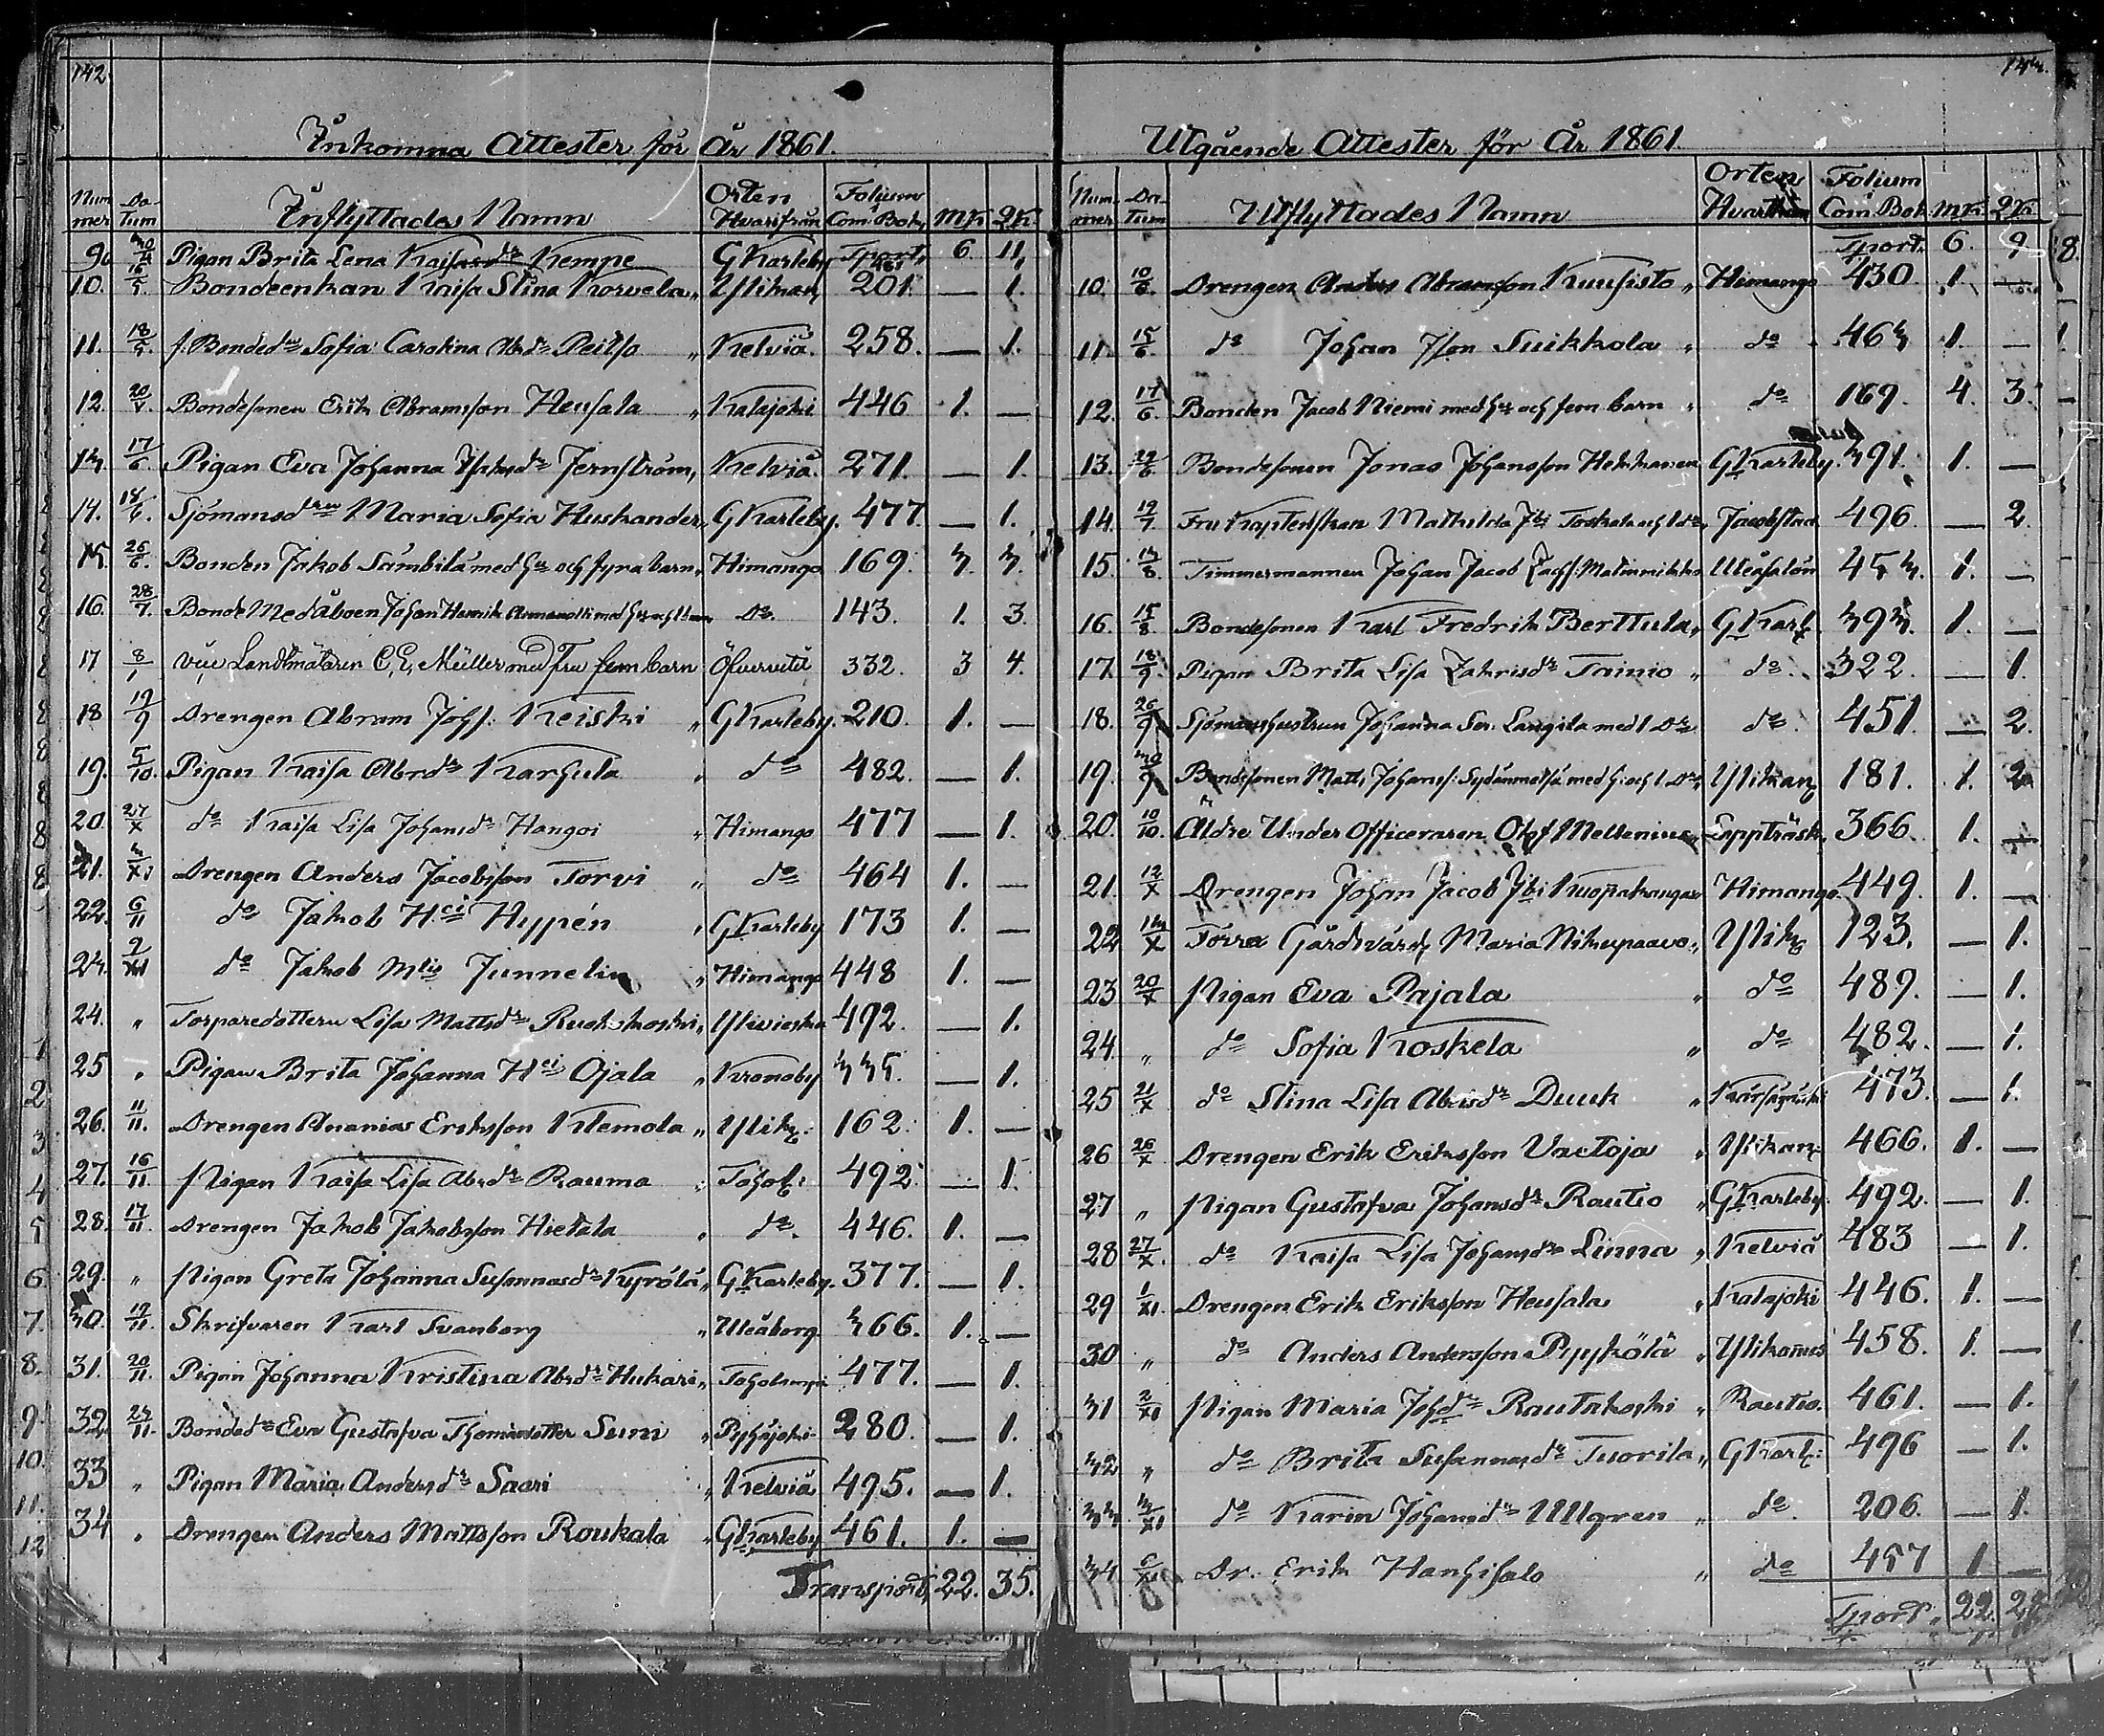 142.
Inkomna Attester för År 1861.
Num mer Da- tum Inflyttades Namn Orten Hvarifrån Folium i Com. Bok. MK. QK.
Tport. 6 11.
9. 30/4 Pigan Brita Lena Kaisasdr Kempe G Karleby 461
10. 16/5. Bondeenkan Kaisa Stina Korvela „ Ylikan, 201. — 1.
11. 18/5. f. Bondedn Sofia Carolina Abrdr Peitso „ Kelviå. 258. — 1.
12. 20/V. Bondesonen Erik Abramsson Heusala „ Kalajoki 446 1. —
13. 17/6. Pigan Eva Johanna Isaksdr Jernström, Kelviå. 271. — 1.
14. 18/6. Sjömansdrn Maria Sofia Huskander, G Karleby. 477. — 1.
15. 26/6. Bonden Jakob Sämbilä med hu och fyra barn, Himango 169. 3. 3.
16. 28/7. Bonde Medåboen Johan Henrik med hu och 1 barn Do. 143. 1. 3.
17 8/ vice Landtmätaren C. E. Müller med Fru fem barn Öfvertite 332. 3 4.
18 19/9 Drengen Abram Johs: Keiski „ G Karleby. 210. 1. —
19. 5/10. Pigan Kaisa Abrdr Karhula „ do 482. — 1.
20. 27/X do Kaisa Lisa Johansdr Hangoi „ Himango 477 — 1.
21. 3/XI Drengen Anders Jacobsson Torvi „ do 464 1. —
22. 6/11 do Jakob Hci Hyppén „ G Karleby 173 1. —
23. 9/XI do Jakob Mtts Junnelin „ Himango 448 1. —
24. „ Torparedottern Lisa Mattsdr Ruokokoski, Ylivieska 492. — 1.
25 „ Pigan Brita Johanna Hci Ojala „ Kronoby 335. — 1.
26. 11/11. Drengen Ananias Eriksson Klemola „ Ylik: 162. 1. —
27. 16/11 Pigan Kaisa Lisa Abrdr Rauma „ Tohol: 492. — 1.
28. 17/11. Drengen Jakob Jakobsson Hietala „ do. 446. 1. —
29. „ Pigan Greta Johanna Susannasdr Kyrölä, G Karleby. 377. — 1.
30. 19/11. Skrifvaren Karl Svanborg „ Uleåborg 366. 1. —
31. 20/11. Pigan Johanna Kristina Abrdr Hukari, Toholampi 477. — 1.
32. 24/11. Bondedr Eva Gustafva Thomasdotter Suni „ Pyhäjoki 280. — 1.
33 „ Pigan Maria Andersdr Saari „ Kelviå 495. — 1.
34 „ Drengen Anders Mattsson Roukala „ G Karleby 461. 1. —
Transport, 22. 35.
143.
Utgående Attester för År 1861.
Num- mer Da- tum Utflyttades Namn Orten Hvarthän Folium i Com. Bok. MK. QK.
Tport. 6. 9
10. 10/6. Drengen Anders Abramsson Kuusisto „ Himango 430. 1. —
11. 15/6. do Johan Json Suikkala „ do 463 1. —
12. 17/6. Bonden Jacob Niemi med hu och fem barn „ do 169. 4. 3.
13. 22/6 Bondesonen Jonas Johansson Hekkanen G Karleby. 391. 1. —
14. 19/7. Fru Kaptenskan Mathilda Jbi Toskala och 1 dr, Jacobstad 496. — 2.
15. 13/8 Timmermannen Johan Jacob Zachs. Matinmikko Uleåsalon 453. 1. —
16. 15/8. Bondesonen Karl Fredrik Berttula, G Karl: 393. 1. —
17. 18/9. Pigan Brita Lisa Zakrisdr Tainio „ do. 322. — 1.
18. 26/9 Sjömanshustrun Johanna Sor. Langila med 1 Dr do. 451. — 2.
19. 30/9 Bondesonen Matts Johanss: Sydänmetsä med h: och 1 Dr, Ylikan, 181. 1. 2
20. 10/10. Äldre Under Officeraren Olof Mellenius, Lappträsk. 366. 1. —
21. 12/X Drengen Johan Jacob Jbi Kuopakangas Himango. 449. 1. —
22 13/X Förra Gårdvärd, Maria Nikupaavo, Ylik, 123. — 1.
23 20/X Pigan Eva Pajala „ do 489. — 1.
24. „ do Sofia Koskela „ do 482. — 1.
25 21/X do Stina Lisa Abrdr Duuk „ Kärsämäki 473. — 1.
26 26/X Drengen Erik Eriksson Vaetoja „ Ylikan: 466. 1. —
27 „ Pigan Gustafva Johansdr Rautio „ G Karleby. 492. — 1.
28 27/X. do Kaisa Lisa Johansdr Linna „ Kelviå 483 — 1.
29 1/XI. Drengen Erik Eriksson Heusala „ Kalajoki 446. 1. —
30 „ do Anders Andersson Pyykölä „ Ylikannus 458. 1. —
31 2/XI Pigan Maria Johdr Rautakoski „ Rautio. 461. — 1.
32 „ do Brita Susannasdr Tuorila „ G Karl: 496 — 1.
33 3/XI do Karin Johansdr Ullgren „ do. 206. — 1.
34 6/XI Dr. Erik Hanhisalo „ do 457 1 —
Tport. 22. 26